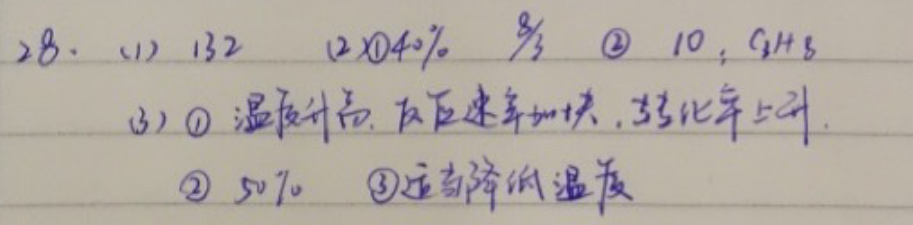 28. (1) 132 (2)①40% 8/3 ② 10; C3H8
(3) ① 温度升高,反应速率加快,转化率上升.
② 50% ③适当降低温度